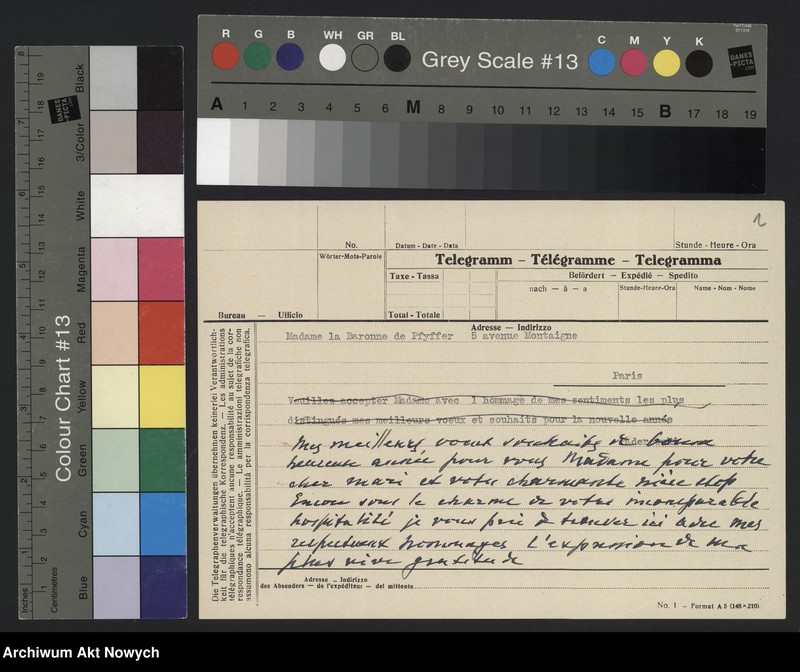 R G B WH GR BL
Grey Scale #13
C M Y K
DANES-PICTA.COM
A 1 2 3 4 5 6 M 8 9 10 11 12 13 14 15 B 17 18 19
Colour Chart #13
Blue Cyan Green Yellow Red Magenta White 3/Color Black
Inches 1 2 3 4 5 6 7 8
Centimetres 1 2 3 4 5 6 7 8 9 10 11 12 13 14 15 16 17 18 19
DANES-PICTA.COM
No.
Datum - Date - Data
Stunde - Heure - Ora
Wörter-Mots-Parole
Telegramm – Télégramme – Telegramma
Taxe - Tassa
Befördert – Expédié – Spedito
nach — à — a
Stunde-Heure-Ora
Name - Nom - Nome
Bureau — Ufficio
Total - Totale
Adresse — Indirizzo
Madame la Baronne de Pfyffer 5 avenue Montaigne
Paris
Veuilles accepter Madame avec l hommage de mes sentiments les plus
distingués mes meilleurs voeux et souhaits pour la nouvelle année
Mes meilleurs voeux souhaits de bonne
heureuse année pour vous Madame pour votre
cher mari et votre charmante nièce stop
Encore sous le charme de votre incomparable
hospitalité je vous prie de trouver ici avec mes
respectueux hommages l'expression de ma
plus vive gratitude
Die Telegraphenverwaltungen übernehmen keinerlei Verantwortlich-
keit für die telegraphische Korrespondenz. — Les administrations
télégraphiques n'acceptent aucune responsabilité au sujet de la cor-
respondance télégraphique. — Le amministrazioni telegrafiche non
assumono alcuna responsabilità per la corrispondenza telegrafica.
Adresse — Indirizzo
des Absenders — de l'expéditeur — del mittente
No. 1 – Format A 5 (148×210)
Archiwum Akt Nowych